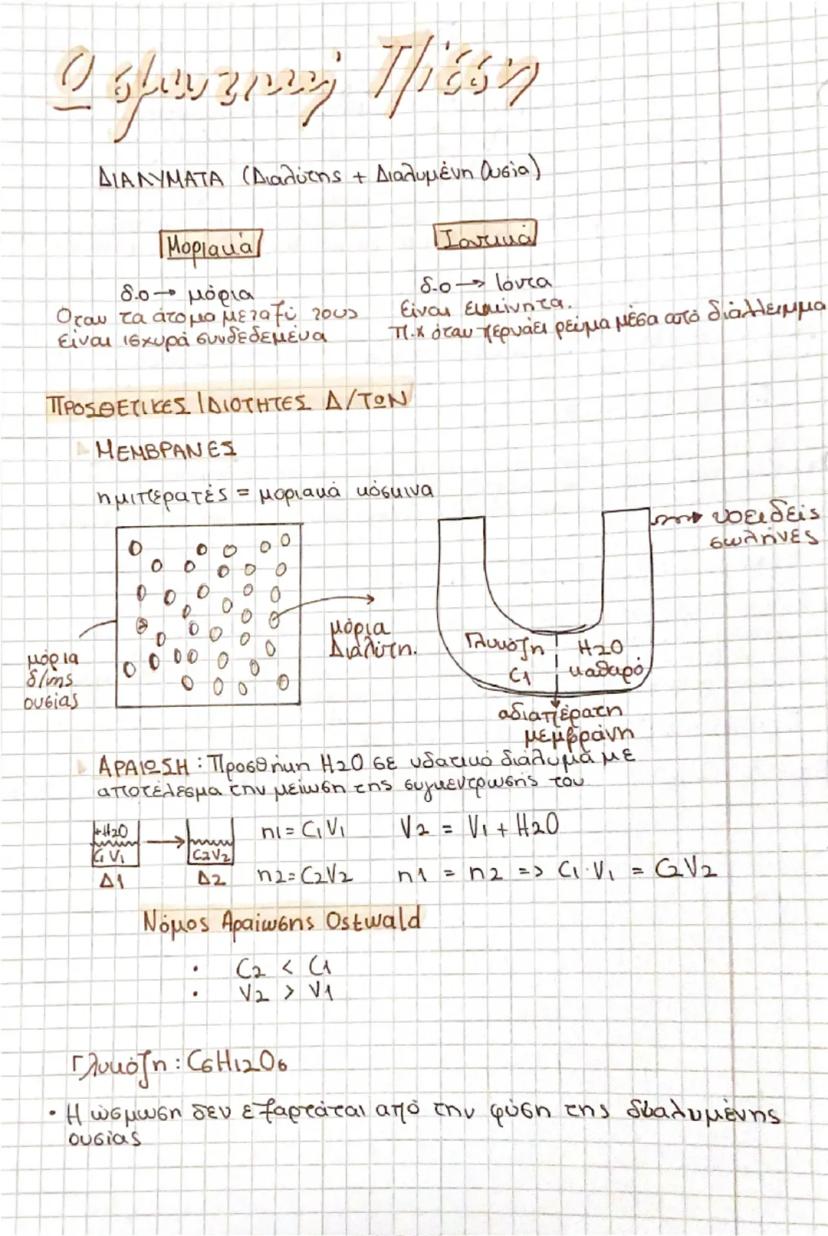 Οσμωτική Πίεση
ΔΙΑΛΥΜΑΤΑ (Διαλύτης + Διαλυμένη Ουσία)
Μοριακά
Ιοντικά
δ.ο → μόρια
Οταν τα άτομα μεταξύ τους
είναι ισχυρά συνδεδεμένα
δ.ο → Ιόντα
Είναι ευκίνητα.
Π.χ όταν περνάει ρεύμα μέσα από διάλλειμμα
ΠΡΟΣΘΕΤΙΚΕΣ ΙΔΙΟΤΗΤΕΣ Δ/ΤΩΝ
ΜΕΜΒΡΑΝΕΣ
ημιπερατές = μοριακά κόσκινα
μόρια
δ/μης
ουσίας
μόρια
Διαλύτη.
υοειδείς
σωλήνες
Γλυκόζη
C1
H2O
καθαρό
αδιαπέρατη
μεμβράνη
ΑΡΑΙΩΣΗ : Προσθήκη H2O σε υδατικό διάλυμα με
αποτέλεσμα την μείωση της συγκέντρωσης του
+H2O
C1 V1
Δ1
→
C2V2
Δ2
n1 = C1V1 V2 = V1 + H2O
n2 = C2V2 n1 = n2 => C1·V1 = C2V2
Νόμος Αραίωσης Ostwald
· C2 < C1
· V2 > V1
Γλυκόζη : C6H12O6
• Η ώσμωση δεν εξαρτάται από την φύση της διαλυμένης
ουσίας